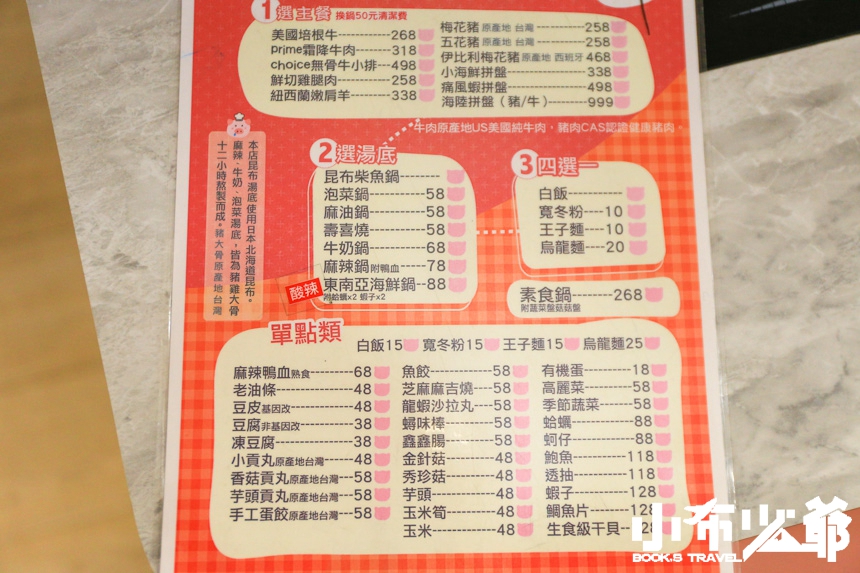 1 選主餐 換鍋50元清潔費
美國培根牛----------268
prime霜降牛肉-------318
choice無骨牛小排---498
鮮切雞腿肉----------258
紐西蘭嫩肩羊--------338
梅花豬 原產地 台灣 ----------258
五花豬 原產地 台灣 ----------258
伊比利梅花豬 原產地 西班牙 468
小海鮮拼盤----------338
痛風蝦拼盤----------498
海陸拼盤（豬/牛）--------999
牛肉原產地US美國純牛肉，豬肉CAS認證健康豬肉。
本店昆布湯底使用日本北海道昆布。
麻辣、牛奶、泡菜湯底，皆為豬雞大骨
十二小時熬製而成。豬大骨原產地台灣
2 選湯底
昆布柴魚鍋--------
泡菜鍋----------58
麻油鍋----------58
壽喜燒----------58
牛奶鍋----------68
麻辣鍋附鴨血----78
酸辣 東南亞海鮮鍋--88
附蛤蠣x2 蝦子x2
3 四選一
白飯---------
寬冬粉----10
王子麵----10
烏龍麵----20
素食鍋-------268
附蔬菜盤菇菇盤
單點類
白飯15 寬冬粉15 王子麵15 烏龍麵25
麻辣鴨血熟食--------68
老油條--------------48
豆皮基因改----------48
豆腐非基因改--------38
凍豆腐--------------38
小貢丸原產地台灣----48
香菇貢丸原產地台灣---58
芋頭貢丸原產地台灣---58
手工蛋餃原產地台灣---58
魚餃-------------58
芝麻麻吉燒-----58
龍蝦沙拉丸-----58
蟳味棒----------58
鑫鑫腸----------58
金針菇----------48
秀珍菇----------48
芋頭-------------48
玉米筍----------48
玉米-------------48
有機蛋----------18
高麗菜----------58
季節蔬菜-------58
蛤蠣-------------88
蚵仔-------------88
鮑魚-----------118
透抽-----------118
蝦子-----------128
鯛魚片--------128
生食級干貝--
小布少爺
BOOK.S TRAVEL